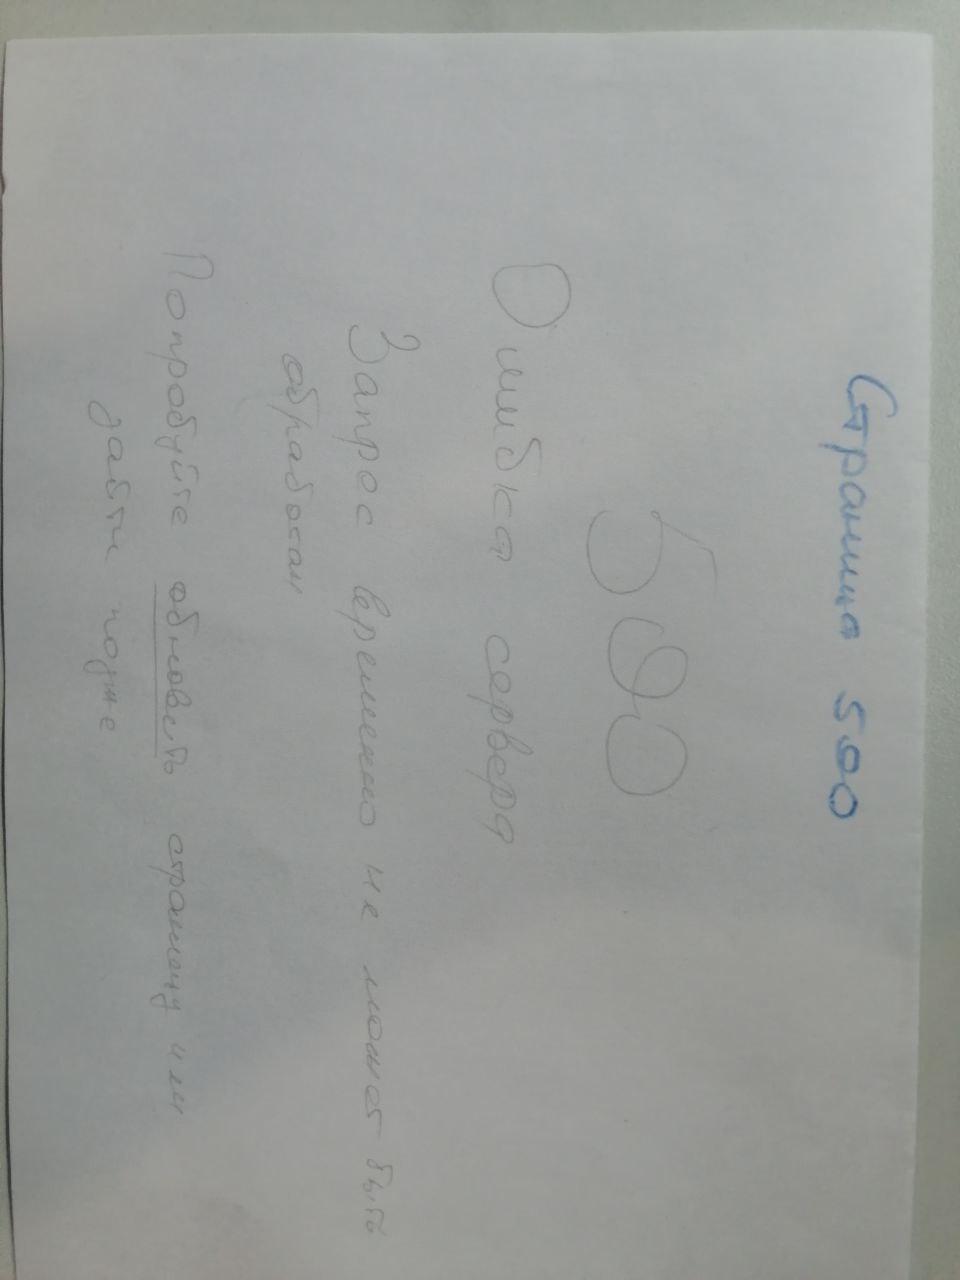 Страница 500
500
Ошибка сервера
Запрос временно не может быть
обработан
Попробуйте обновить страницу или
зайти позже